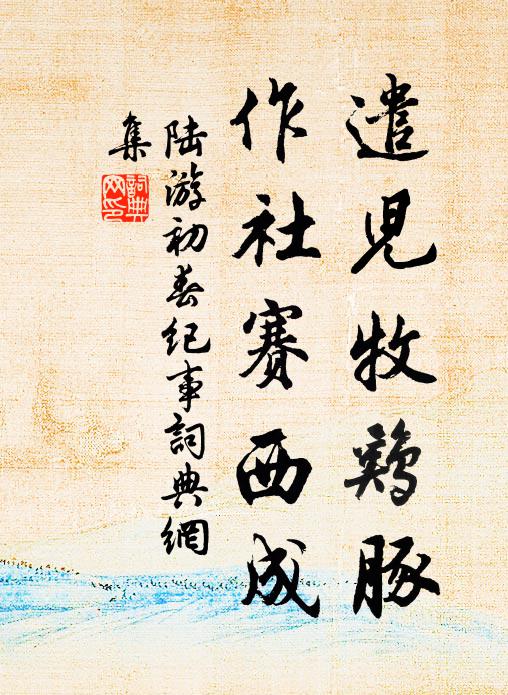 遣兒牧鷄豚
作社賽西成
陆游初春纪事詞典網
集
詞典
网印